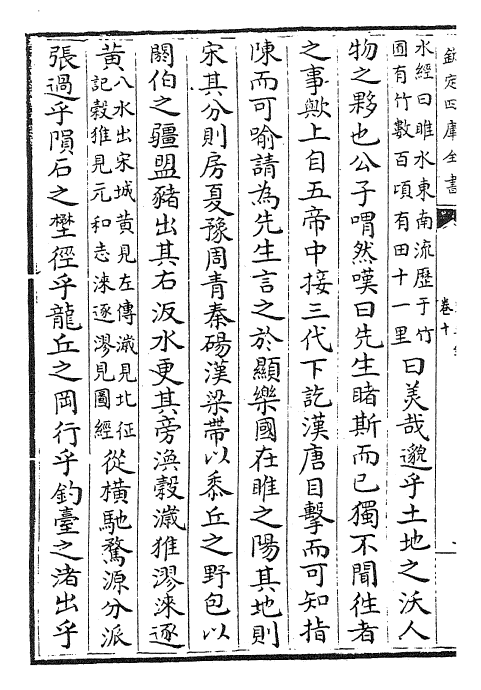 欽定四庫全書
卷十
水經曰睢水東南流歷于竹
圃有竹數百頃有田十一里
曰美哉邈乎土地之沃人
物之夥也公子喟然嘆曰先生睹斯而已獨不聞徃者
之事歟上自五帝中接三代下訖漢唐目擊而可知指
陳而可喻請為先生言之於顯樂國在睢之陽其地則
宋其分則房夏豫周青秦碭漢梁帶以黍丘之野包以
閼伯之疆盟豬出其右汳水更其旁渙穀瀻猚漻淶逐
黄
八水出宋城黄見左傳瀻見北征
記穀猚見元和志淶逐漻見圖經
從橫馳騖源分派
張過乎隕石之壄徑乎龍丘之岡行乎釣臺之渚出乎